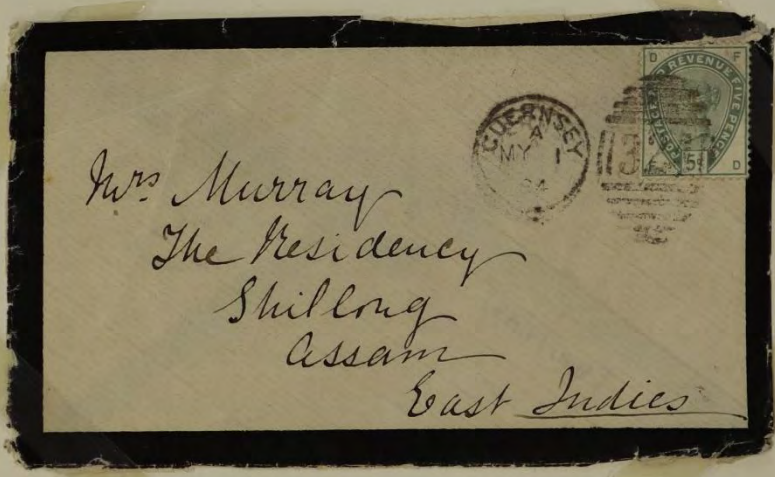 D F
POSTAGE AND REVENUE FIVE PENCE
F 5D D
GUERNSEY
A
MY 1
84
Mrs Murray
The Residency
Shillong
Assam
East Indies